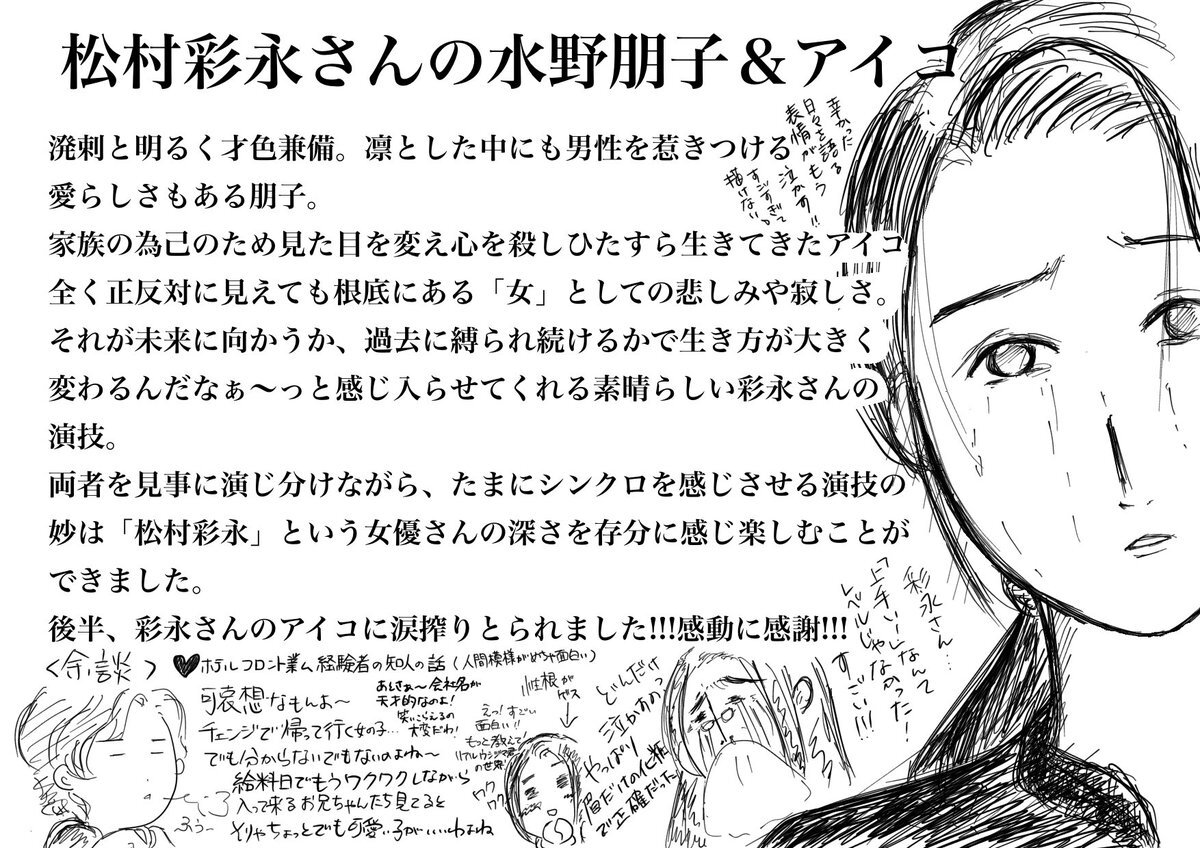 松村彩永さんの水野朋子＆アイコ
溌剌と明るく才色兼備。凛とした中にも男性を惹きつける
愛らしさもある朋子。
家族の為己のため見た目を変え心を殺しひたすら生きてきたアイコ。
全く正反対に見えても根底にある「女」としての悲しみや寂しさ。
それが未来に向かうか、過去に縛られ続けるかで生き方が大きく
変わるんだなぁ〜っと感じ入らせてくれる素晴らしい彩永さんの
演技。
両者を見事に演じ分けながら、たまにシンクロを感じさせる演技の
妙は「松村彩永」という女優さんの深さを存分に感じ楽しむことが
できました。
後半、彩永さんのアイコに涙搾りとられました!!!感動に感謝!!!
辛かった
日々を語る
表情がもう
泣かす!!
すごすぎて
描けない。
彩永さん…
「上手いー」なんて
レベルじゃなかった!
すごい!!!
＜余談＞ ♥ホテルフロント業ム経験者の知人の話(人間模様がめちゃ面白い)
可哀想なもんよ〜
チェンジで帰って行く女の子…
でも分からないでもないのよね〜
給料日でもうワクワクしながら
入って来るお兄ちゃんたち見てると
そりゃちょっとでも可愛い子がいいわよね
ふぅ〜
会社名が
天才的なのよ!
笑いこらえるの
大変だわ!
えっ!すごい
面白い!!
もっと教えて!
の世界
ワクワク
性根が
ゲス
どんだけ
泣かすのっ
やっぱり
眉だけの化粧
で正確だった